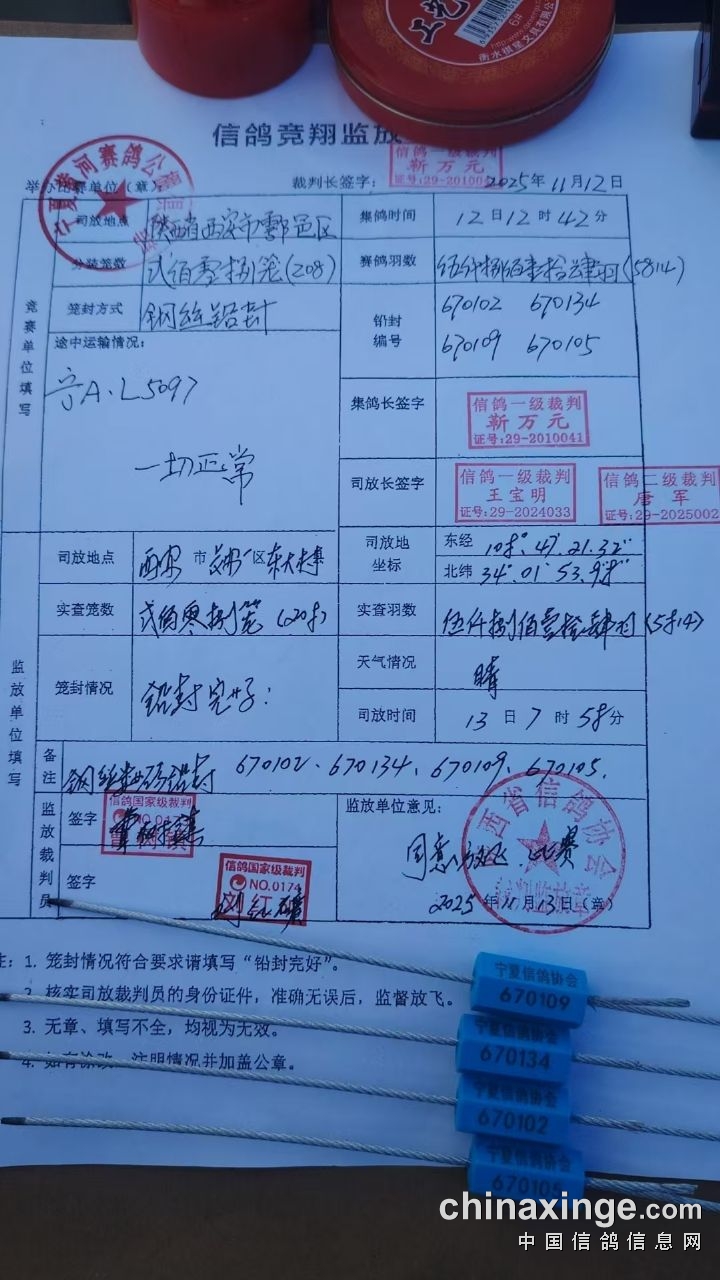 工艺
http://www.
6#
衡水祺星文具有限公
信鸽竞翔监放
宁夏黄河赛鸽公
举办比赛单位（章）
裁判长签字：
信鸽一级裁判
靳万元
证号:29-20100
2025年11月12日
竞赛单位填写
司放地点
陕西省西安市鄠邑区
集鸽时间
12日12时42分
分装笼数
弍佰零捌笼(208)
赛鸽羽数
伍仟捌佰壹拾肆羽(5814)
笼封方式
钢丝铅封
铅封编号
670102 670134
670109 670105
途中运输情况：
宁A·L5097
一切正常
集鸽长签字
信鸽一级裁判
靳万元
证号:29-2010041
司放长签字
信鸽一级裁判
王宝明
证号:29-2024033
信鸽二级裁判
唐军
证号:29-2025002
监放单位填写
司放地点
西安市 区东大
司放地坐标
东经
108°.47'.21.32"
北纬
34°.01'53.98"
实查笼数
弍佰零捌笼(208)
实查羽数
伍仟捌佰壹拾肆羽(5814)
笼封情况
铅封完好：
天气情况
晴
司放时间
13日7时58分
备注
钢丝数码铅封 670102、670134、670109、670105.
监放裁判员
签字
信鸽国家级裁判
签字
信鸽国家级裁判
NO.0174
刘红
监放单位意见：
同意放飞 比赛
西省信鸽协会
2025年11月13日(章)
注：1. 笼封情况符合要求请填写“铅封完好”。
2. 核实司放裁判员的身份证件，准确无误后，监督放飞。
3. 无章、填写不全，均视为无效。
4. 如有涂改，注明情况并加盖公章。
宁夏信鸽协会
670109
宁夏信鸽协会
670134
宁夏信鸽协会
670102
宁夏信鸽协会
670105
chinaxinge.com
中国信鸽信息网